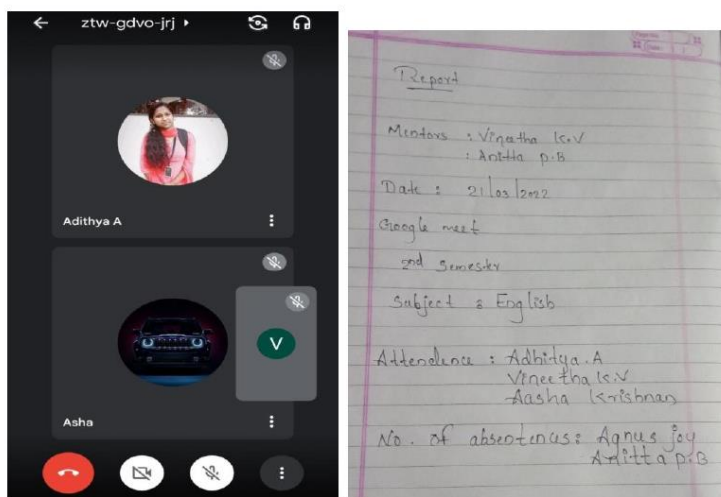 ztw-gdvo-jrj
Adithya A
V
Asha
Report
Mentors : Vineetha K.V
: Anitta P.B
Date : 21/03/2022
Google meet
2nd Semester
Subject : English
Attendence : Adhitya.A
Vineetha K.V
Aasha Krishnan
No. of absentences: Agnus joy
Anitta P.B